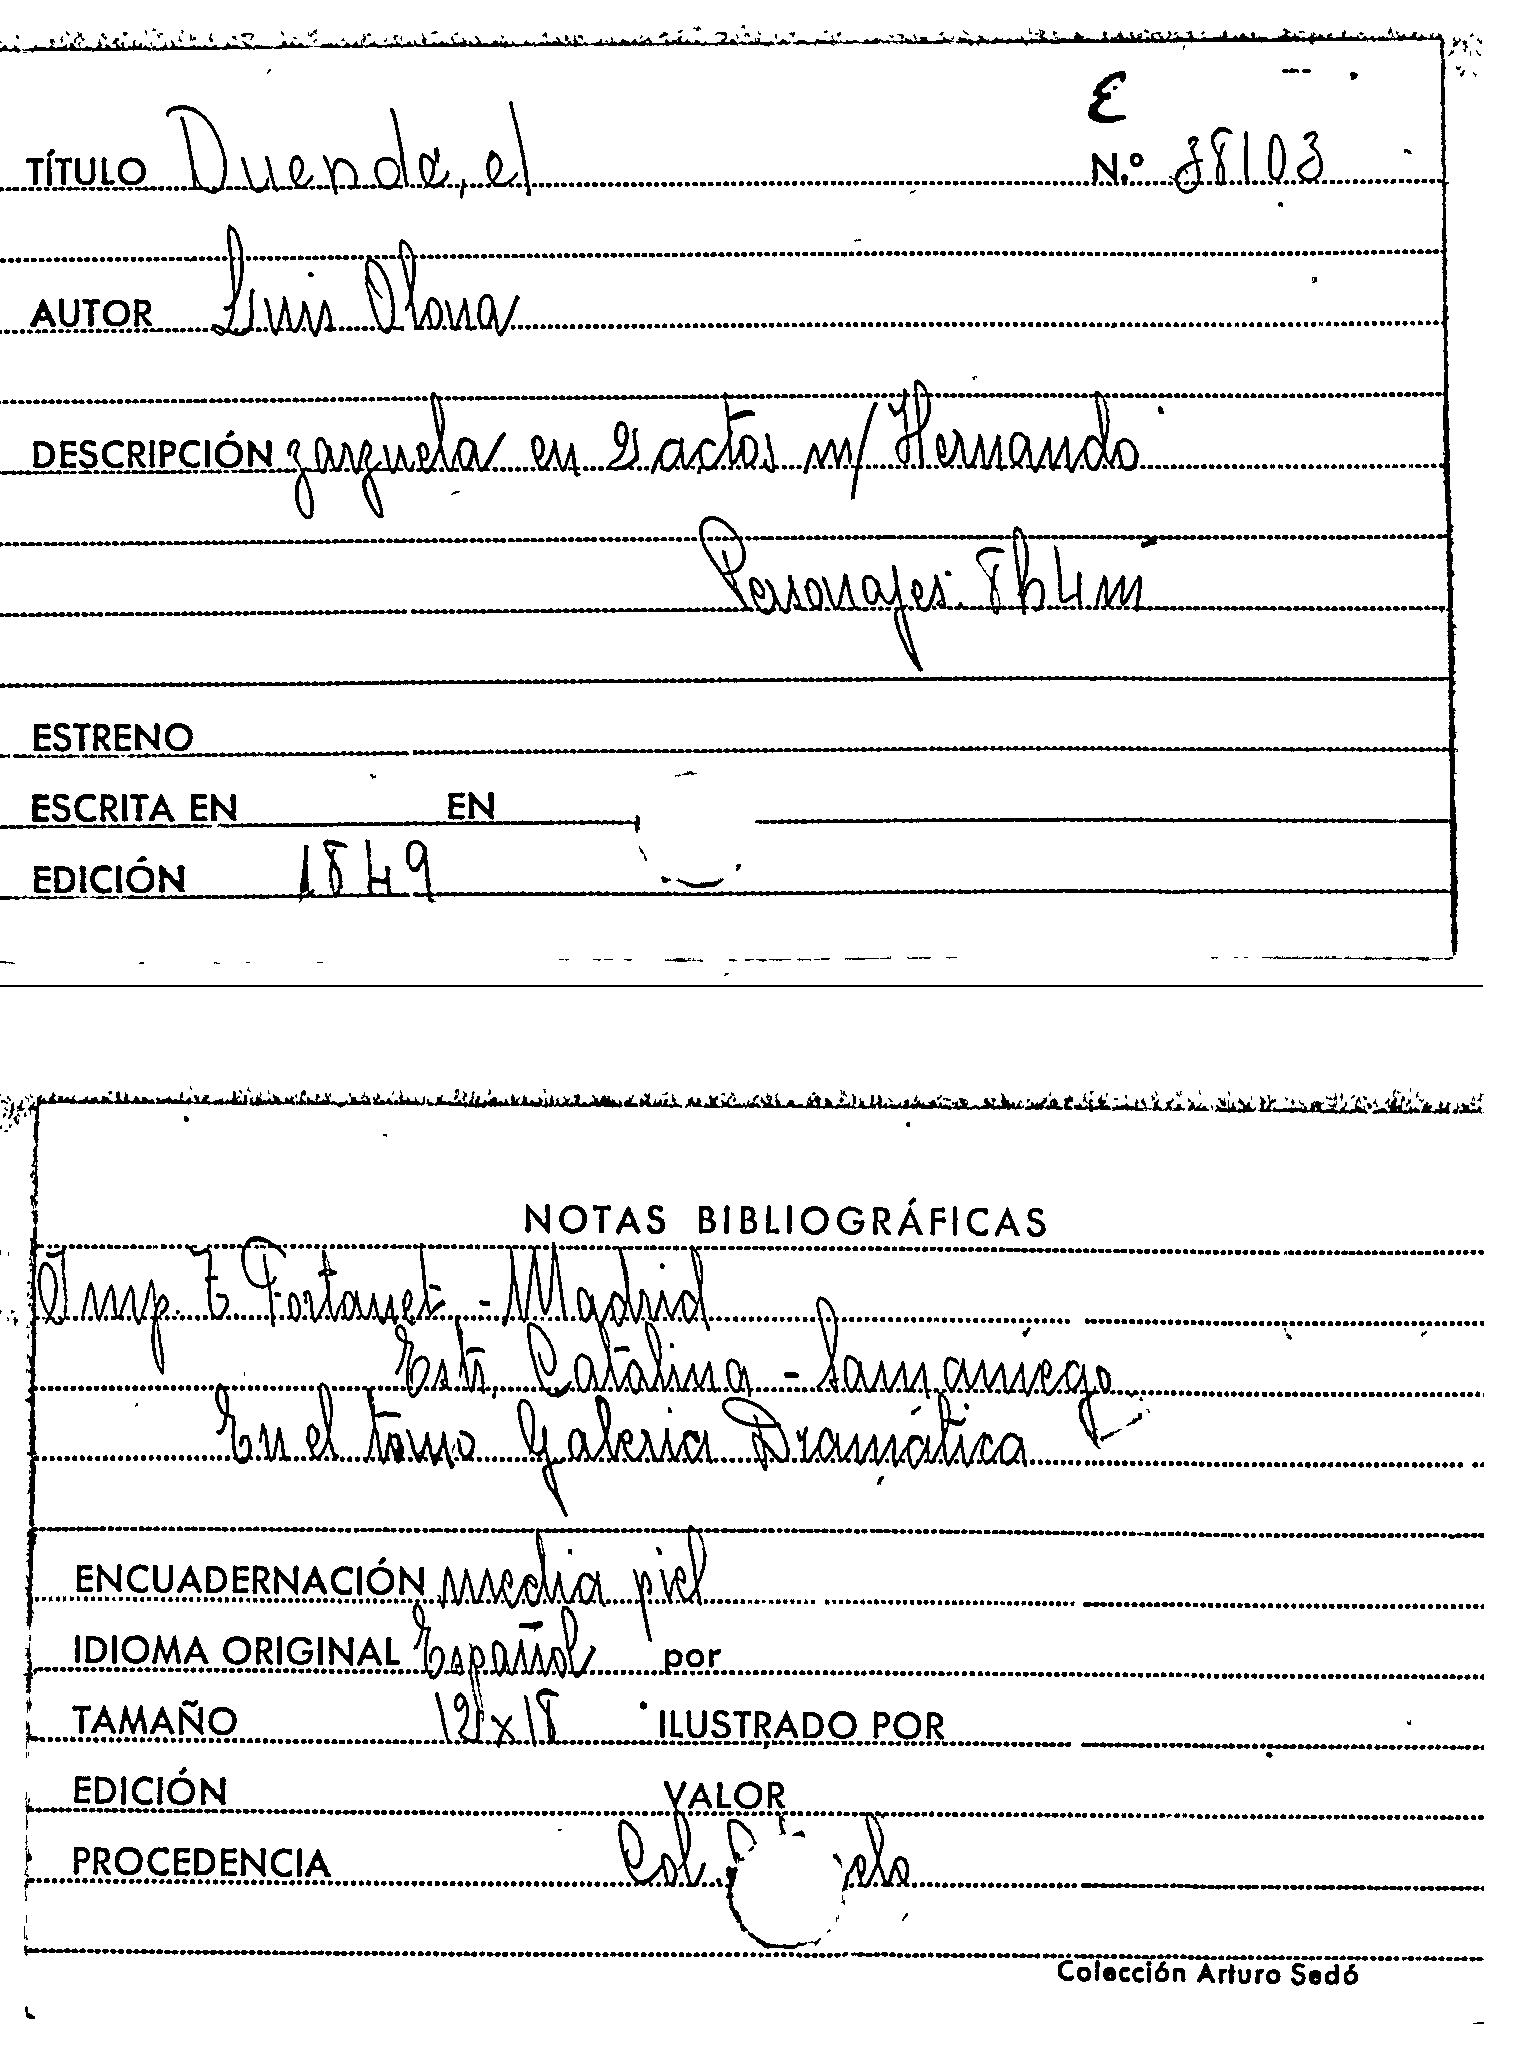 E
TÍTULO Duende, el N.º 38103
AUTOR Luis Olona
DESCRIPCIÓN zarzuela en 2 actos m/ Hernando
Personajes: 8h 4m
ESTRENO
ESCRITA EN EN
EDICIÓN 1849
NOTAS BIBLIOGRÁFICAS
Imp. T Fortanet - Madrid
Estr. Catalina - Samaniego
En el tomo Galeria Dramática
ENCUADERNACIÓN media piel
IDIOMA ORIGINAL Español por
TAMAÑO 12x18 ILUSTRADO POR
EDICIÓN VALOR
PROCEDENCIA Col.
Colección Arturo Sedó